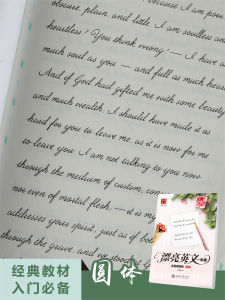 obscure, plain, and little, I am soulless and
heartless? You think wrong! — I have as
much soul as you — and full as much heart
And if God had gifted me with some beauty
and much wealth, I should have made it as
hard for you to leave me, as it is now for me
to leave you. I am not talking to you now
through the medium of custom, con
nor even of mortal flesh, — it is my
addresses your spirit; just as if both
through the grave, and we stood
漂亮英文
经典教材
入门必备
圆体